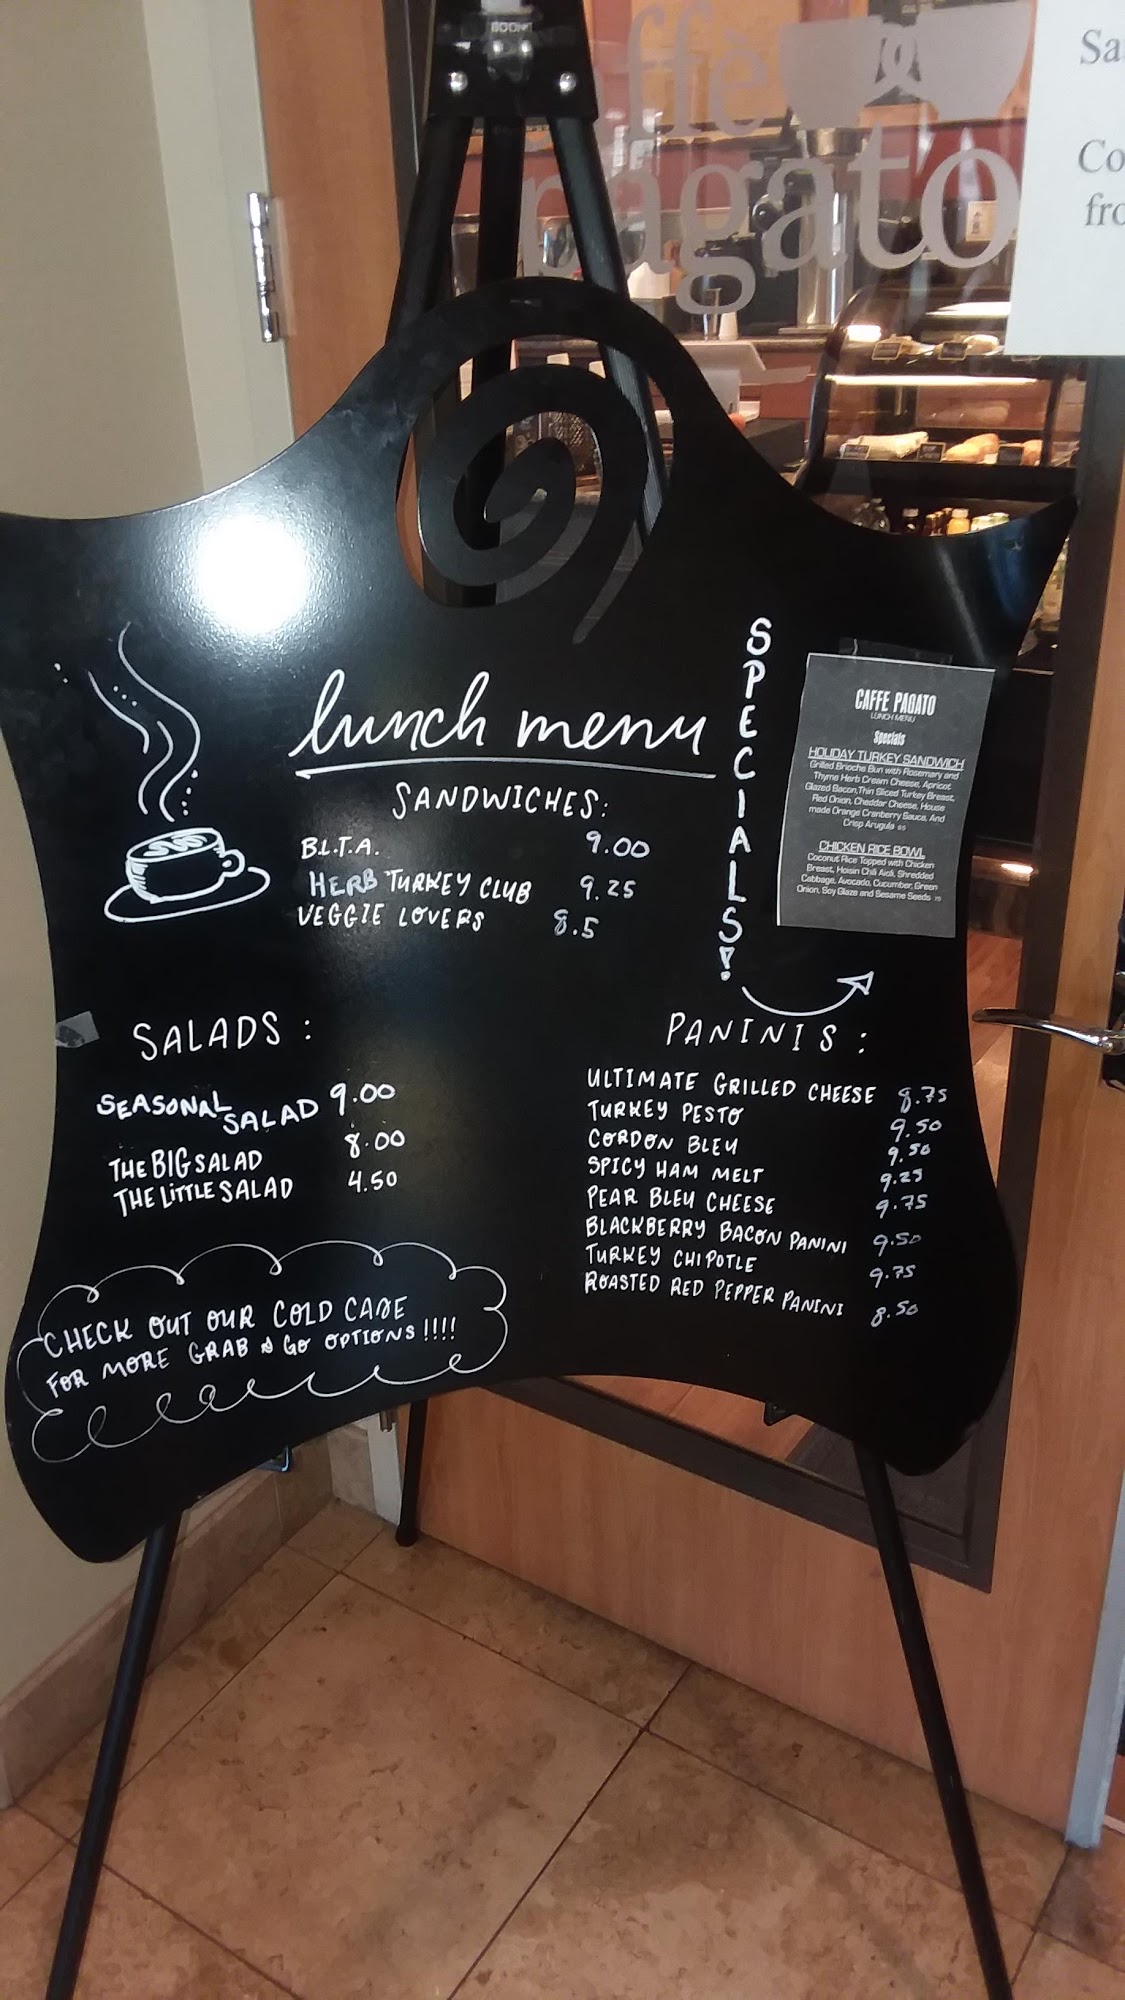 ffè
pagato
Sa
Co
fro
lunch menu
SANDWICHES:
B.L.T.A. 9.00
HERB TURKEY CLUB 9.25
VEGGIE LOVERS 8.5
SPECIALS!
CAFFE PAGATO
LUNCH MENU
Specials
HOLIDAY TURKEY SANDWICH
Grilled Brioche Bun with Rosemary and
Thyme Herb Cream Cheese, Apricot
Glazed Bacon, Thin Sliced Turkey Breast,
Red Onion, Cheddar Cheese, House
made Orange Cranberry Sauce, And
Crisp Arugula
CHICKEN RICE BOWL
Coconut Rice Topped with Chicken
Breast, Hoisin Chili Aioli, Shredded
Cabbage, Avocado, Cucumber, Green
Onion, Soy Glaze and Sesame Seeds
SALADS:
SEASONAL SALAD 9.00
THE BIG SALAD 8.00
THE LITTLE SALAD 4.50
PANINIS:
ULTIMATE GRILLED CHEESE 8.75
TURKEY PESTO 9.50
CORDON BLEU 9.50
SPICY HAM MELT 9.25
PEAR BLEU CHEESE 9.75
BLACKBERRY BACON PANINI 9.50
TURKEY CHIPOTLE 9.75
ROASTED RED PEPPER PANINI 8.50
CHECK OUT OUR COLD CASE
FOR MORE GRAB & GO OPTIONS!!!!